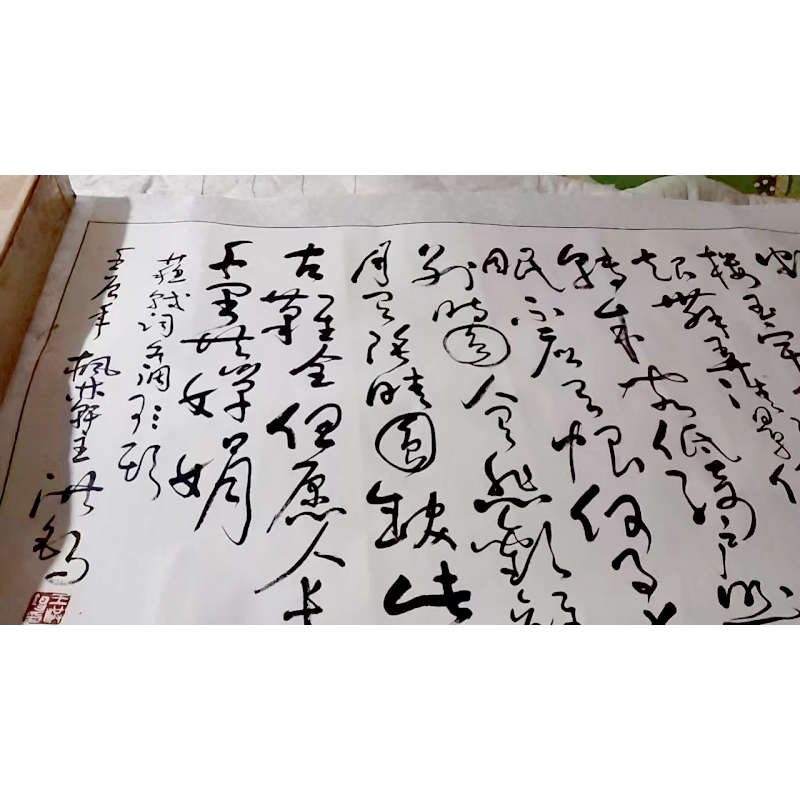 楼玉宇
起舞弄清影何似
转朱阁低绮户照
眠不应有恨何事长
别时圆人有悲欢离
月有阴晴圆缺此
古难全但愿人长
千里共婵娟
苏轼词水调歌头
壬辰年 枫林轩主 洪